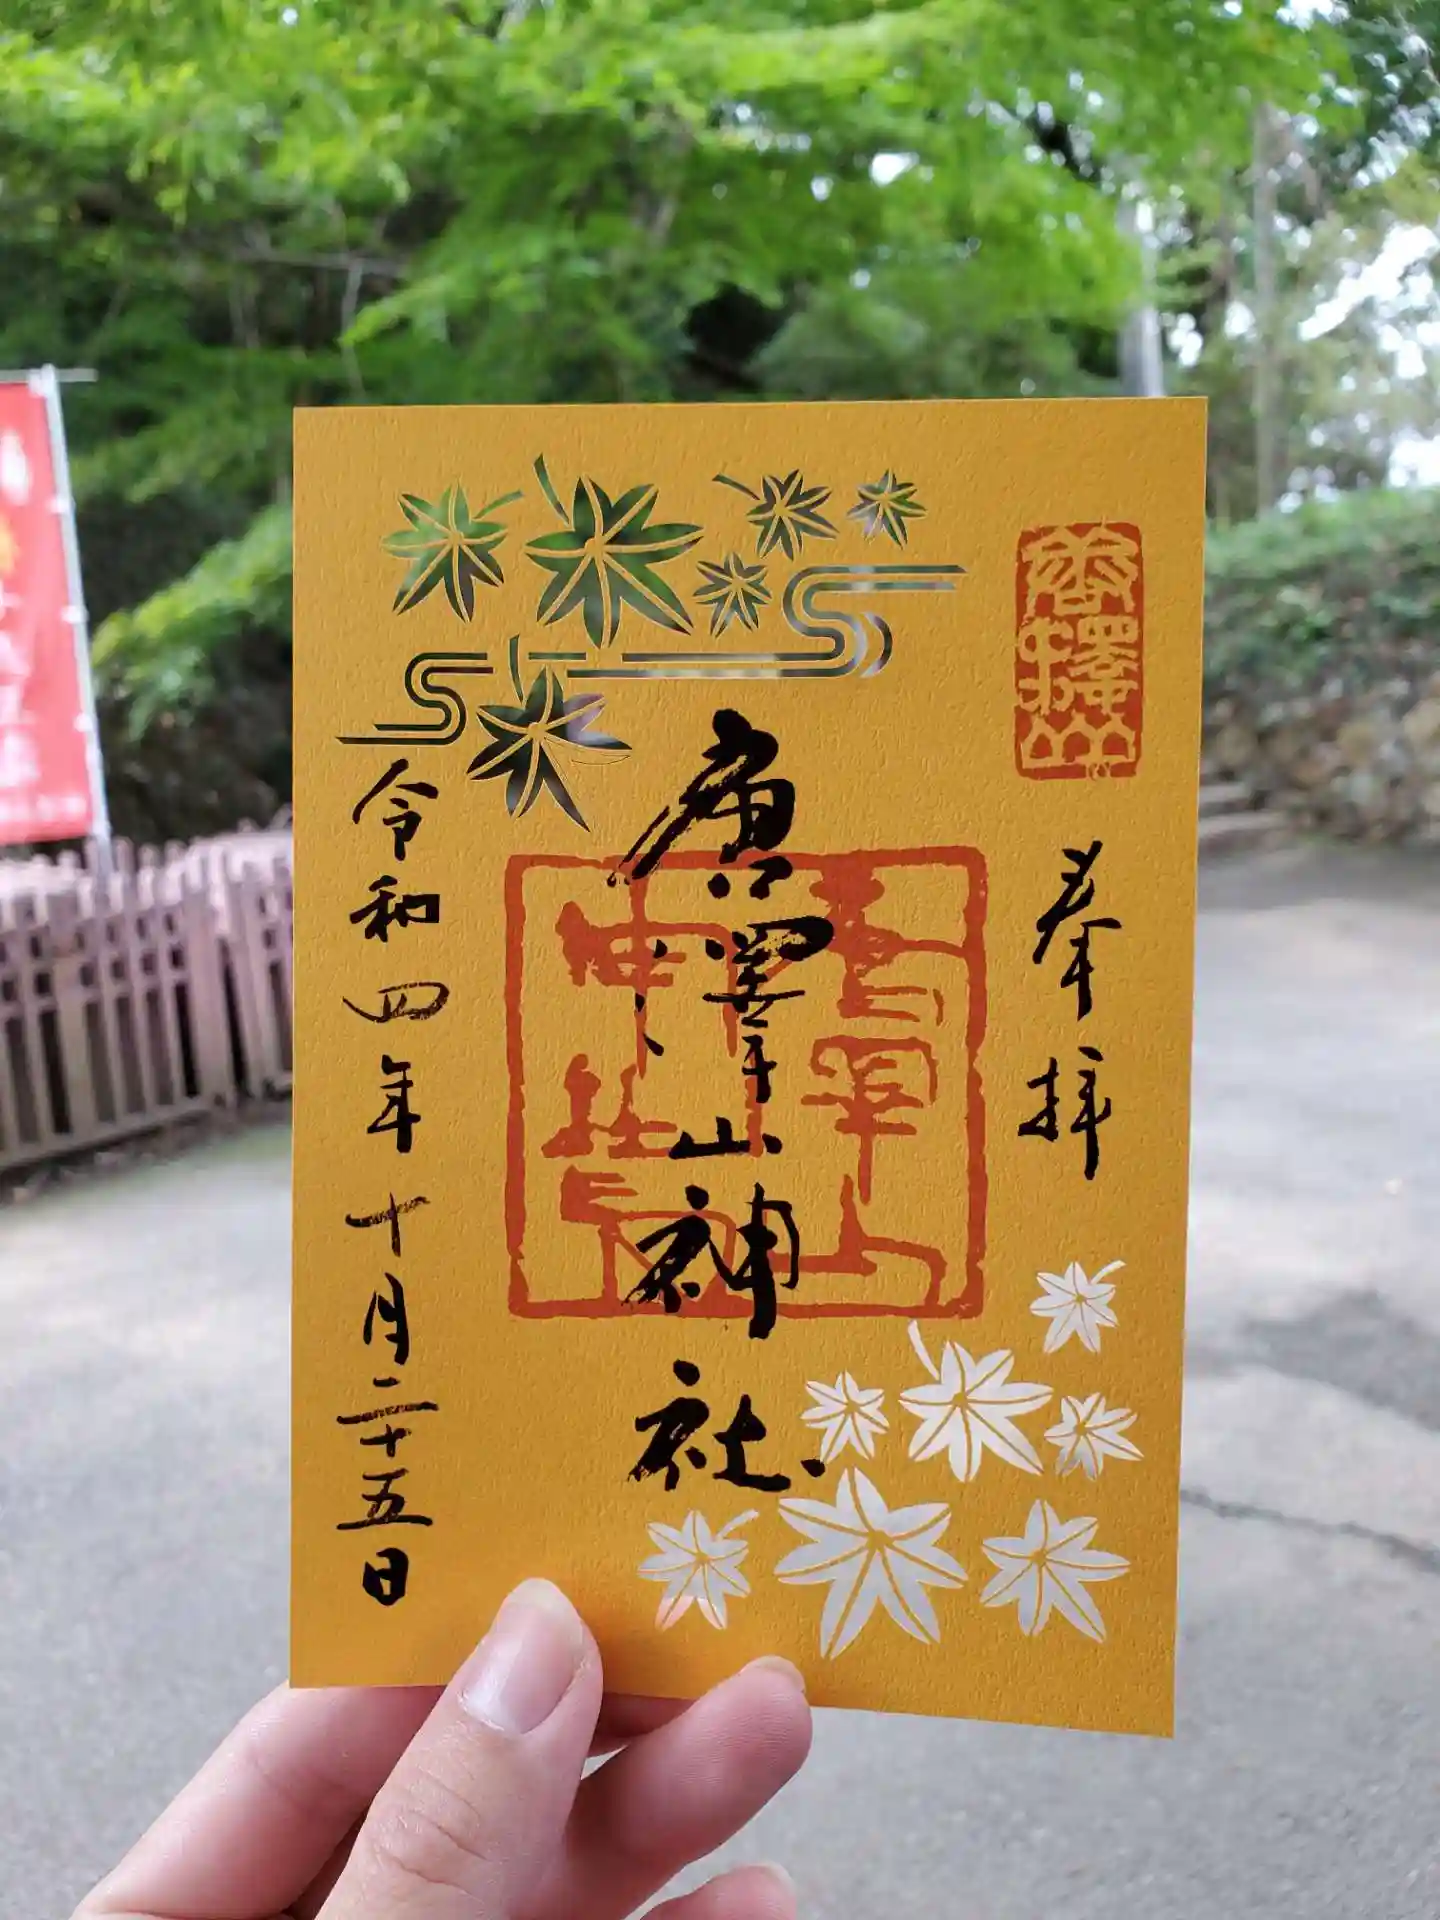 唐澤山
奉拝
唐澤山神社
令和四年十月二十五日